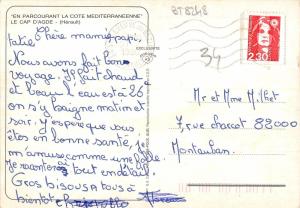 "EN PARCOURANT LA COTE MEDITERRANEENNE"
LE CAP D'AGDE - (Hérault)
Chère mamie, papi,
tatie
Nous avons fait bon
voyage, Il fait chaud
et beau, l'eau est à 26°
on s'y baigne matin et
soir, j'espère que vous
êtes en bonne santé, je
m'amuse comme une folle.
Je raconterai tout en détail.
Gros bisous à tous à
bientôt
34
2,30
Mr et Mme Milhet
7 rue Charcot 82000
Montauban